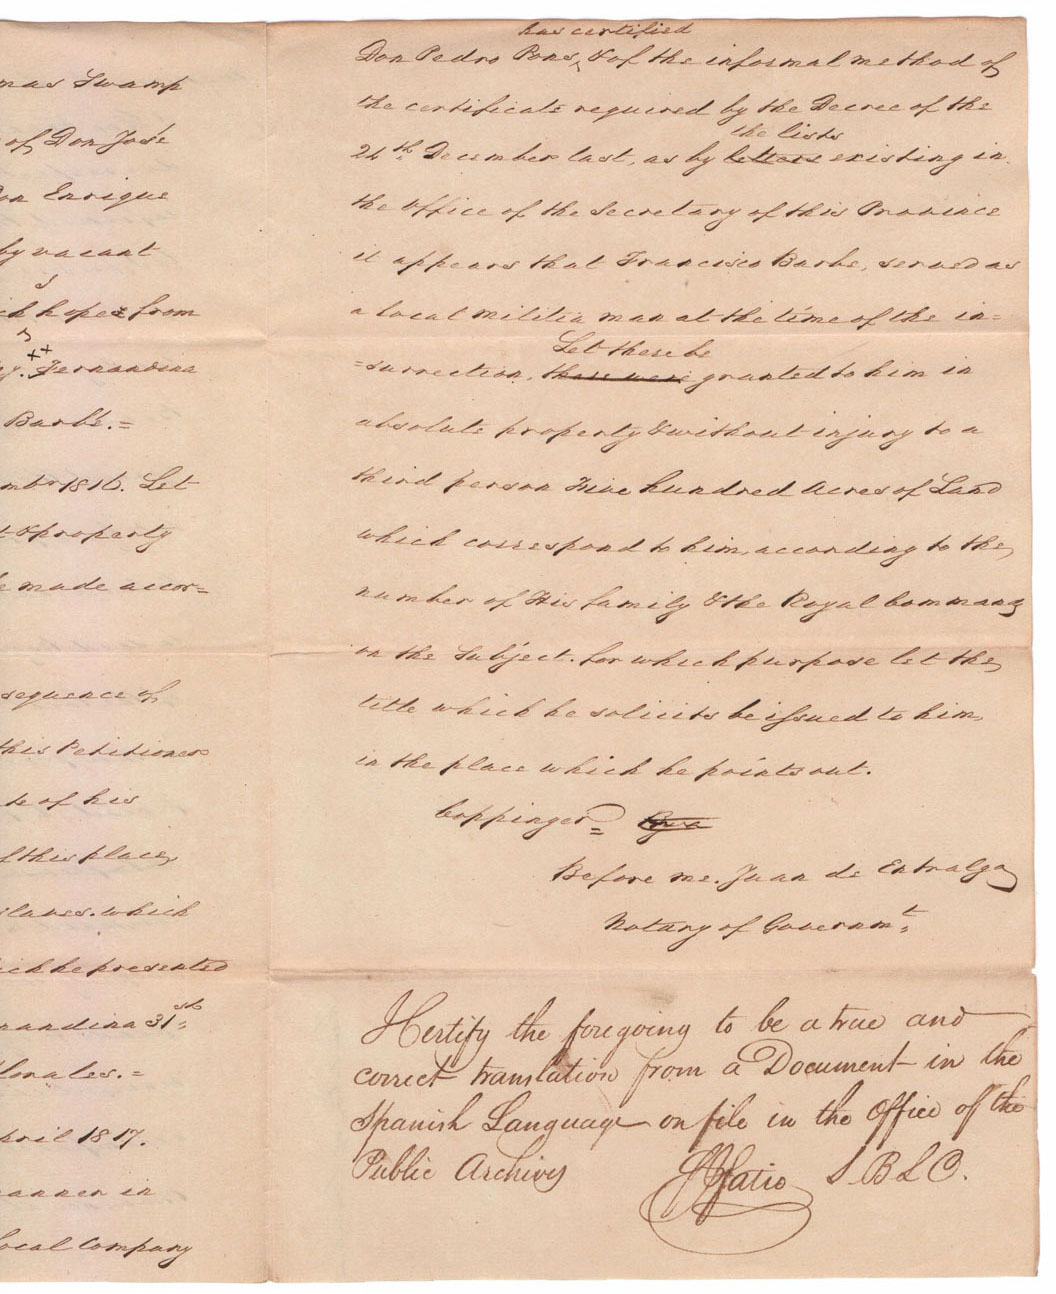 mas Swamp
of Don José
Don Enrique
by vacant
ich hopes from
Fernandina
Barbé.=
1816. Let
t & property
be made accor=
sequence of
this Petitioner
de of his
of this place,
slaves. which
ich he presented
nandina 31st
Morales.=
April 1817.
manner in
local Company
has certified
Don Pedro Pons, & of the informal method of
the certificate required by the Decree of the
the lists
24th December last, as by letters existing in
the office of the Secretary of this Province
it appears that Francisco Barbe, served as
a local militia man at the time of the in=
Let there be
=surrection, there were granted to him in
absolute property & without injury to a
third person Five hundred Acres of Land
which correspond to him, according to the
number of His family & the Royal Command
on the Subject. for which purpose let the
title which he solicits be issued to him,
in the place which he points out.
Coppinger=
Before me. Juan de Entralgo
Notary of Governmt.
I Certify the foregoing to be a true and
correct translation from a Document in the
Spanish Language on file in the Office of the
Public Archives
Fatio S B L C.